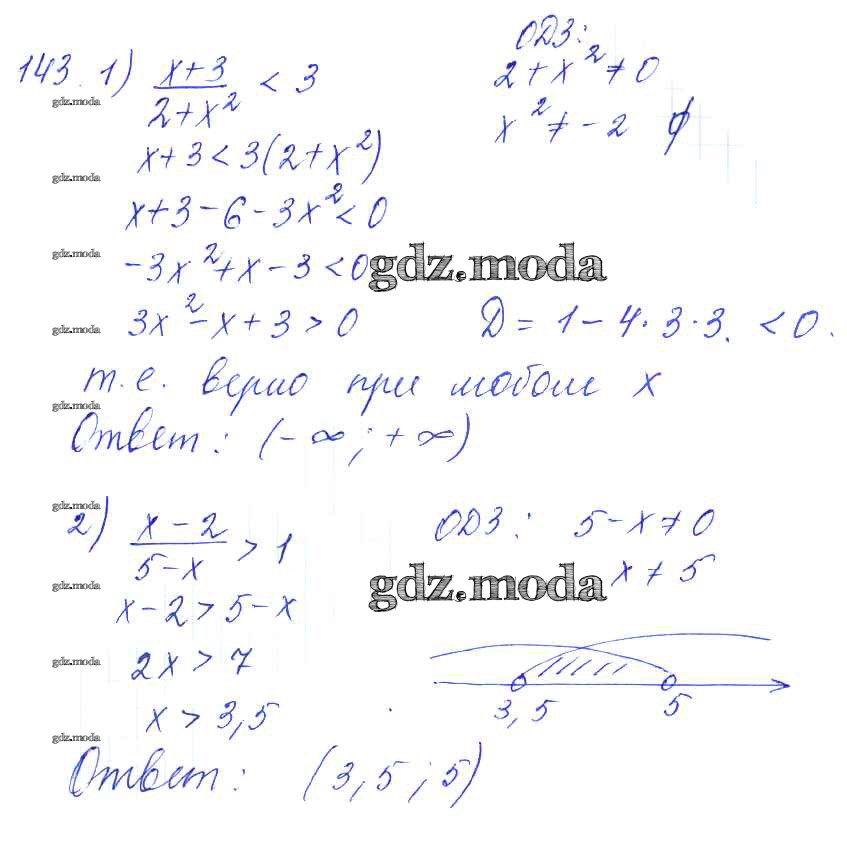 143. 1) (x+3)/(2+x²) < 3
ОДЗ:
2+x² ≠ 0
x² ≠ -2 ∅
gdz.moda
x+3 < 3(2+x²)
gdz.moda
x+3-6-3x² < 0
gdz.moda
-3x²+x-3 < 0
gdz.moda
gdz.moda
3x²-x+3 > 0
D = 1-4·3·3. < 0.
т.е. верно при любом x
gdz.moda
Ответ: (-∞; +∞)
gdz.moda
2) (x-2)/(5-x) > 1
ОДЗ: 5-x ≠ 0
x ≠ 5
gdz.moda
gdz.moda
x-2 > 5-x
gdz.moda
2x > 7
3,5 5
x > 3,5
gdz.moda
Ответ: (3,5; 5)